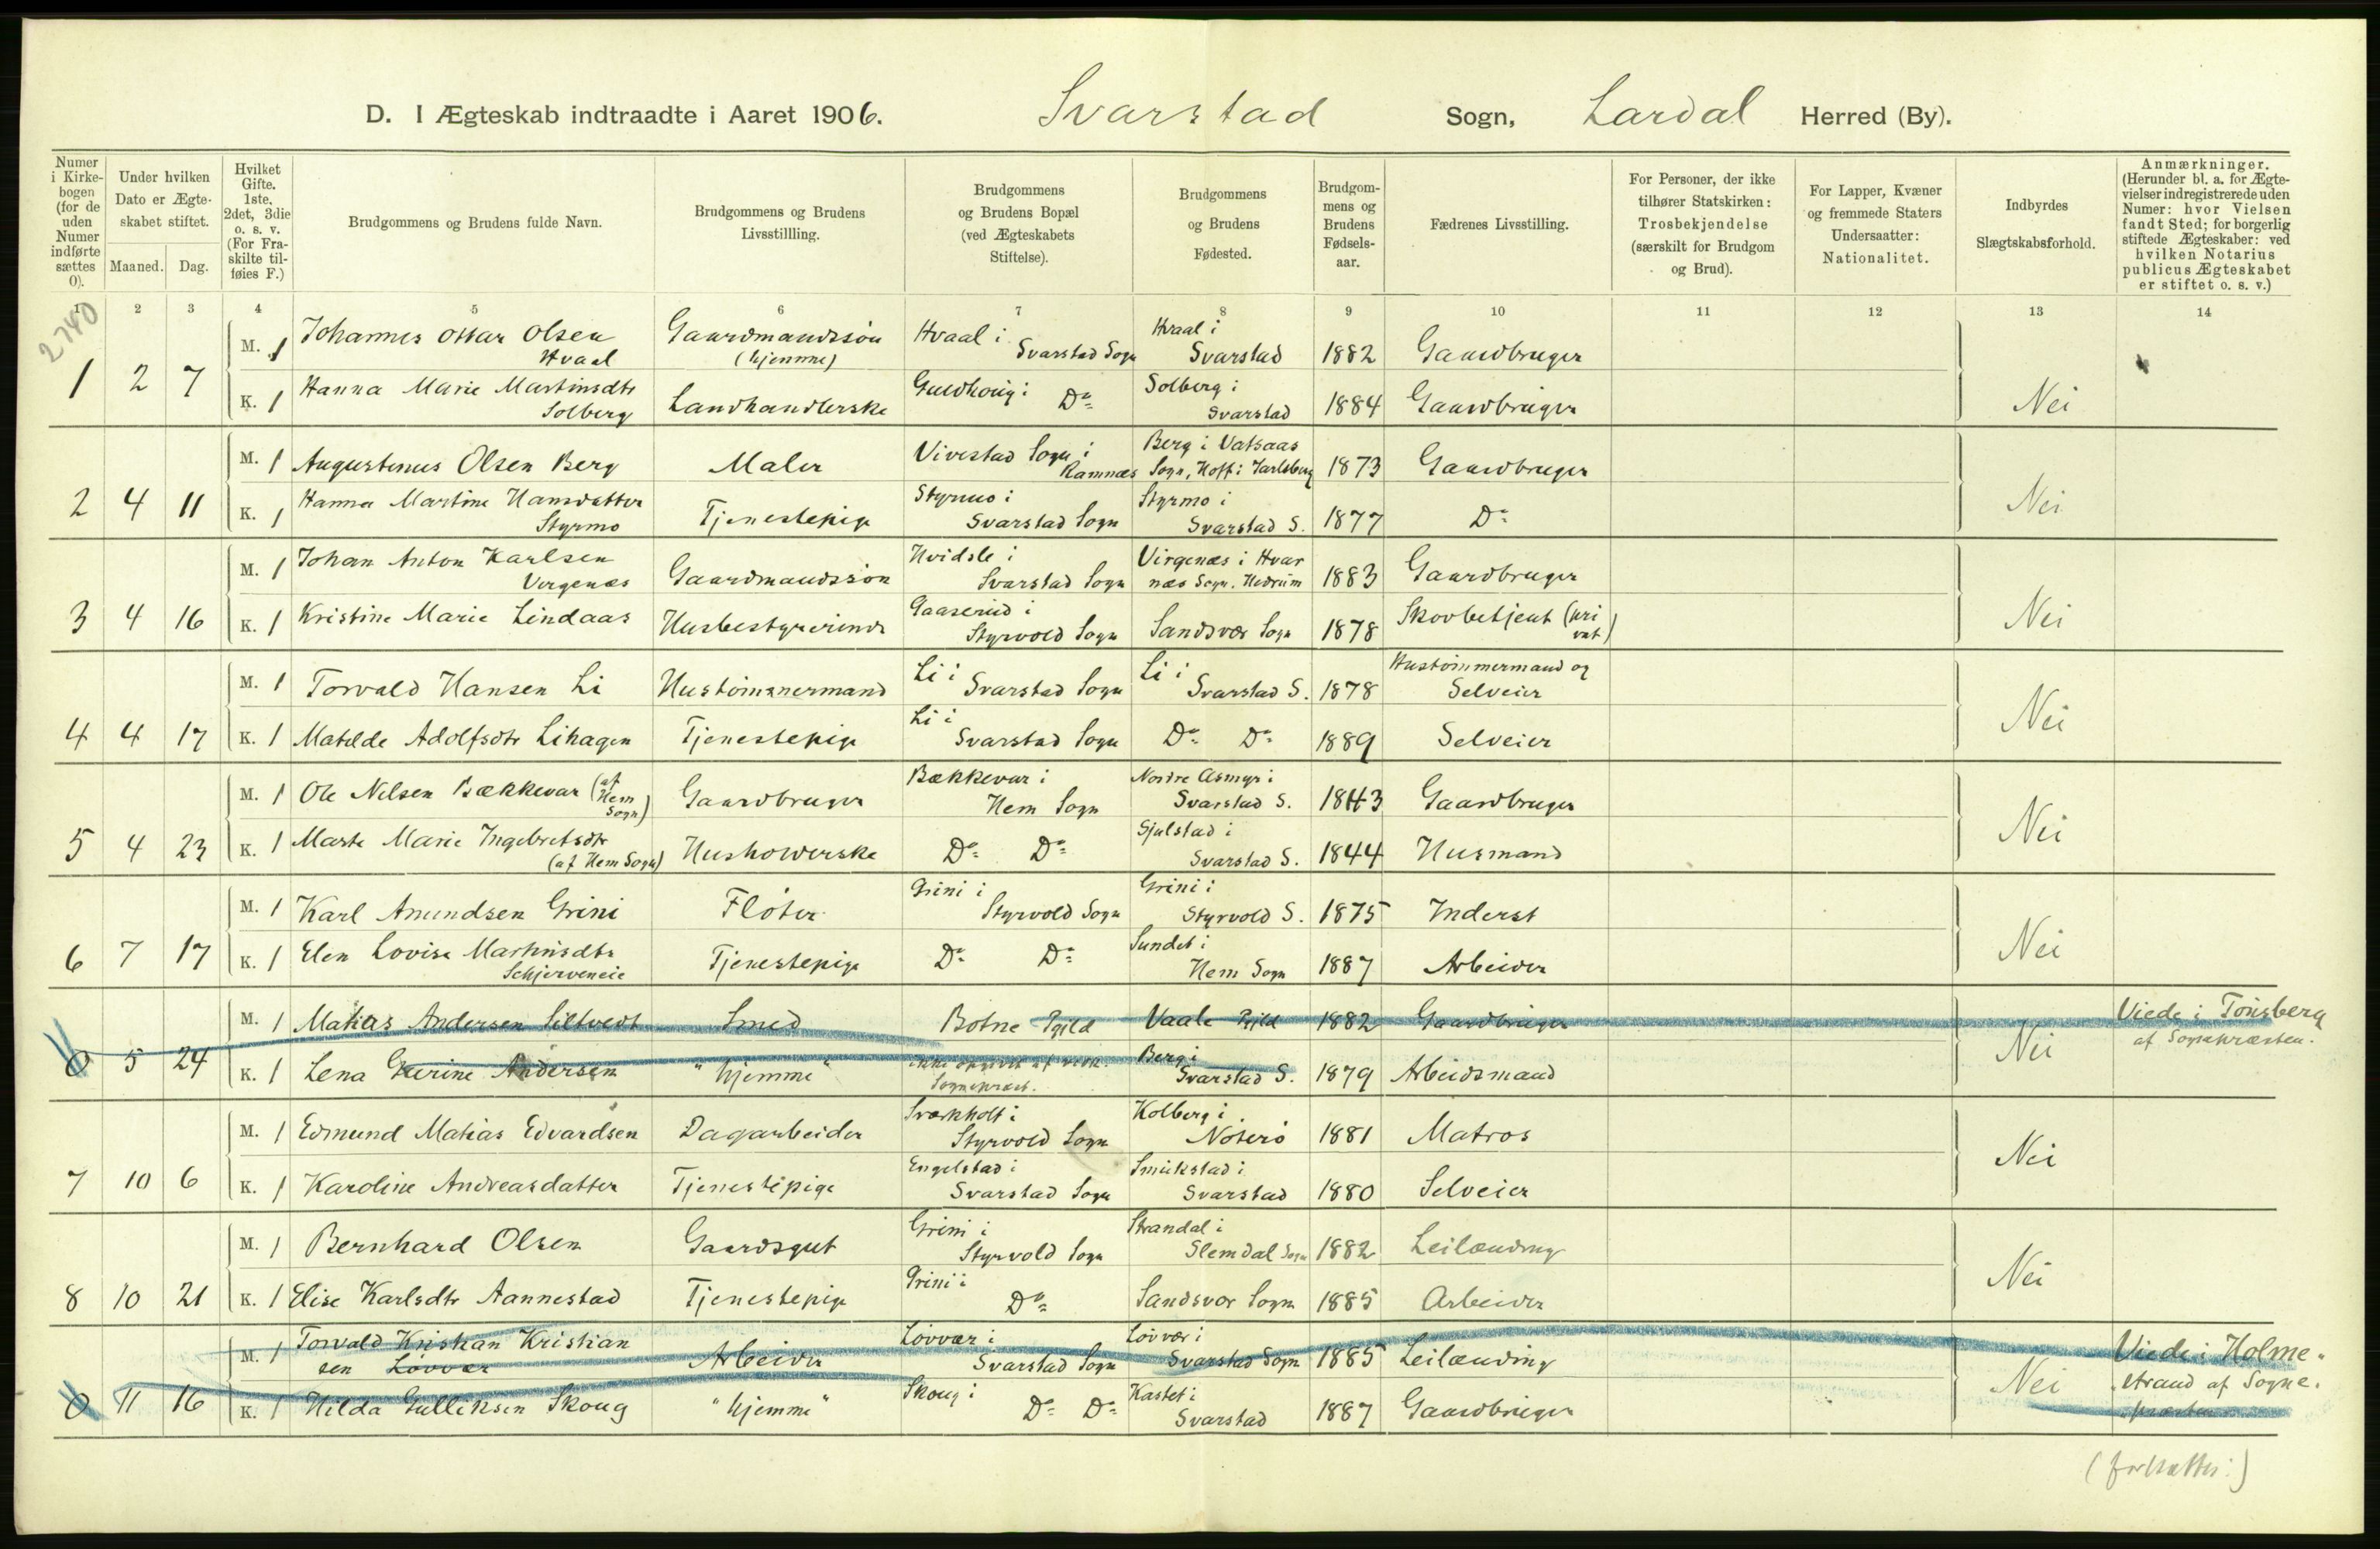 D. I Ægteskab indtraadte i Aaret 1906. Svarstad Sogn, Lardal Herred (By).
Numer i Kirke-bogen (for de uden Numer indførte sættes 0).
Under hvilken Dato er Ægte-skabet stiftet.
Maaned. Dag.
Hvilket Gifte. 1ste, 2det, 3die o. s. v. (For Fra-skilte til-føies F.)
Brudgommens og Brudens fulde Navn.
Brudgommens og Brudens Livsstillling.
Brudgommens og Brudens Bopæl (ved Ægteskabets Stiftelse).
Brudgommens og Brudens Fødested.
Brudgom-mens og Brudens Fødsels-aar.
Fædrenes Livsstilling.
For Personer, der ikke tilhører Statskirken: Trosbekjendelse (særskilt for Brudgom og Brud).
For Lapper, Kvæner og fremmede Staters Undersaatter: Nationalitet.
Indbyrdes Slægtskabsforhold.
Anmærkninger. (Herunder bl. a. for Ægte-vielser indregistrerede uden Numer: hvor Vielsen fandt Sted; for borgerlig stiftede Ægteskaber: ved hvilken Notarius publicus Ægteskabet er stiftet o. s. v.)
1 2 3 4 5 6 7 8 9 10 11 12 13 14
2740
M. 1 Johannes Ottar Olsen Hvaal Gaardmandssøn (hjemme) Hvaal i Svarstad Sogn Hvaal i Svarstad 1882 Gaardbruger
1 2 7 K. 1 Hanna Marie Martinsdtr Solberg Landhandlerske Guldhoug i Do Solberg i Svarstad 1884 Gaardbruger Nei
M. 1 Augustinus Olsen Berg Maler Vivestad Sogn i Ramnæs Berg i Vatsaas Sogn, Hoff i Jarlsberg 1873 Gaardbruger
2 4 11 K. 1 Hanna Martine Hansdatter Styrmo Tjenestepige Styrmo i Svarstad Sogn Styrmo i Svarstad S. 1877 Do Nei
M. 1 Johan Anton Karlsen Vergenæs Gaardmandssøn Hvidsle i Svarstad Sogn Virgenæs i Hvar næs Sogn, Hedrum 1883 Gaardbruger
3 4 16 K. 1 Kristine Marie Lindaas Husbestyrerinde Gaaserud i Styrvold Sogn Sandsvær Sogn 1878 Skovbetjent (pri vat) Nei
M. 1 Torvald Hansen Li Hustømmermand Li i Svarstad Sogn Li i Svarstad S. 1878 Hustømmermand og Selveier
4 4 17 K. 1 Matilde Adolfsdtr Lihagen Tjenestepige Li i Svarstad Sogn Do Do 1889 Selveier Nei
M. 1 Ole Nilsen Bækkevar (af Hem Sogn) Gaardbruger Bækkevar i Hem Sogn Nordre Asmyr i Svarstad S. 1843 Gaardbruger
5 4 23 K. 1 Marte Marie Ingebretsdtr (af Hem Sogn) Husholderske Do Do Gjulstad i Svarstad S. 1844 Husmand Nei
M. 1 Karl Amundsen Grini Fløter Grini i Styrvold Sogn Grini i Styrvold S. 1875 Inderst
6 7 17 K. 1 Elen Lovise Martinsdtr Schjerveneie Tjenestepige Do Do Sundet i Hem Sogn 1887 Arbeider Nei
M. 1 Matias Andersen Siltvedt Smed Botne Pgjld Vaale Pgjld 1882 Gaardbruger Viede i Tønsberg af Sognepræsten.
0 5 24 K. 1 Lena Andersen "hjemme" ikke opgivet af vedk. Sognepræst. Berg i Svarstad S. 1879 Arbeidsmand Nei
M. 1 Edmund Matias Edvardsen Dagarbeider Sværkholt i Styrvold Sogn Kolberg i Nøterø 1881 Matros
7 10 6 K. 1 Karoline Andreasdatter Tjenestepige Engelstad i Svarstad Sogn Smukstad i Svarstad 1880 Selveier Nei
M. 1 Bernhard Olsen Gaardsgut Grini i Styrvold Sogn Strandal i Slemdal Sogn 1882 Leilænding
8 10 21 K. 1 Elise Karlsdtr Aannestad Tjenestepige Grini i Do Sandsvær Sogn 1885 Arbeider Nei
M. 1 Torvald Kristian Kristian sen Løvvær Arbeider Løvvær i Svarstad Sogn Løvvær i Svarstad Sogn 1885 Leilænding Viede i Holme-strand af Sogne-præsten
0 11 16 K. 1 Hilda Gulliksen Skoug "hjemme" Skoug i Do Do Kastet i Svarstad 1887 Gaardbruger Nei
(fortsættes:)